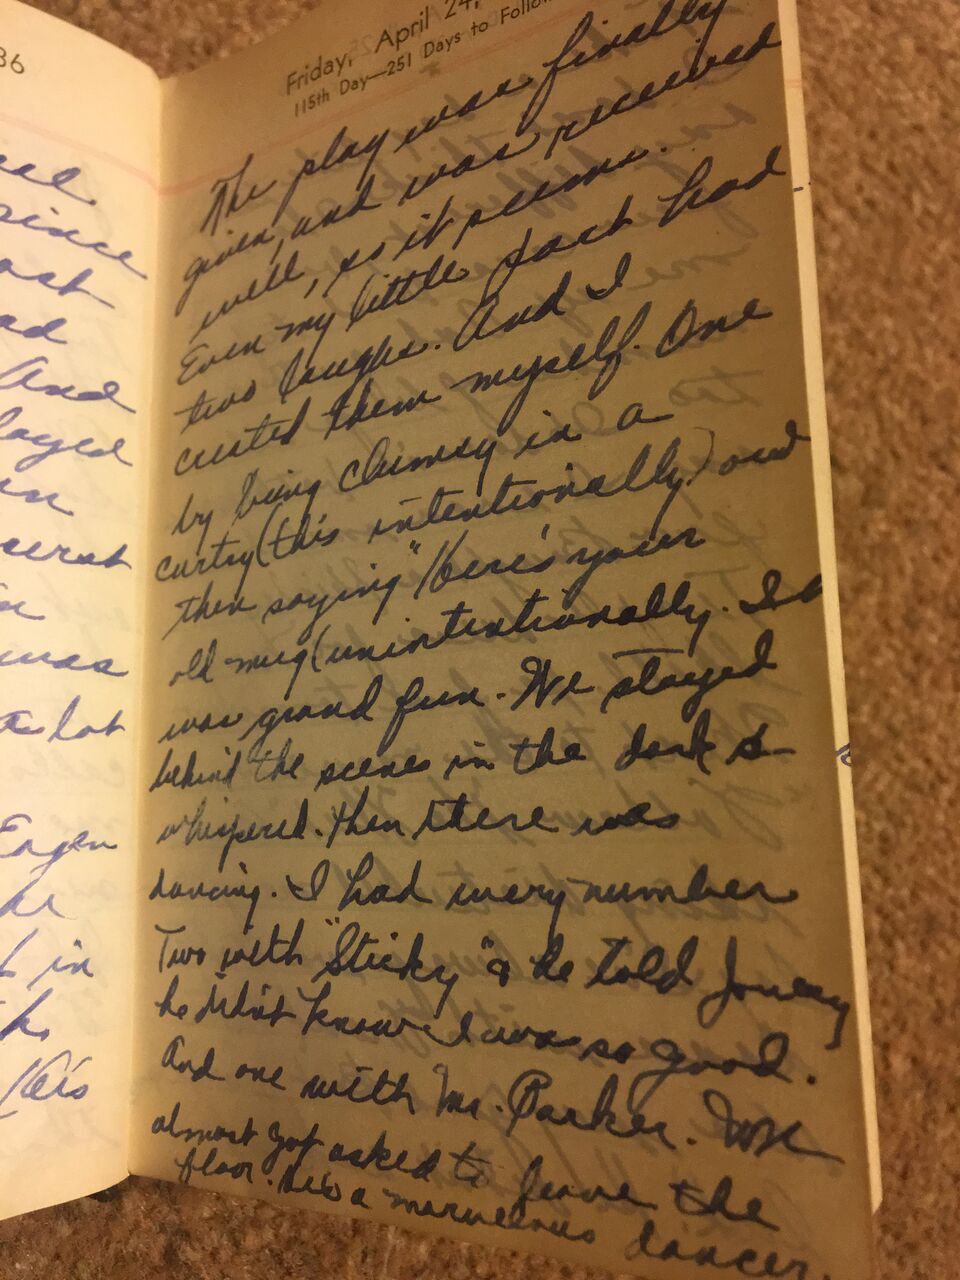 36
eal
since
ast
ad
And
layed
in
in
was
a lot
Eugen
he
t in
He's
Friday, April 24,
115th Day—251 Days to Follow
The play was finally
given, and was received
well, so it seems.
Even my little part had
two laughs. And I
created them myself. One
by being clumsy in a
curtsy (this intentionally) and
then saying "Here's your
old mug (unintentionally. It
was grand fun. We stayed
behind the scenes in the dark &
whispered. Then there was
dancing. I had every number
Two with "Sticky" & he told
he didn't know I was so good.
And one with Mr. Parker. We
almost got asked to leave the
floor. He's a marvelous dancer.